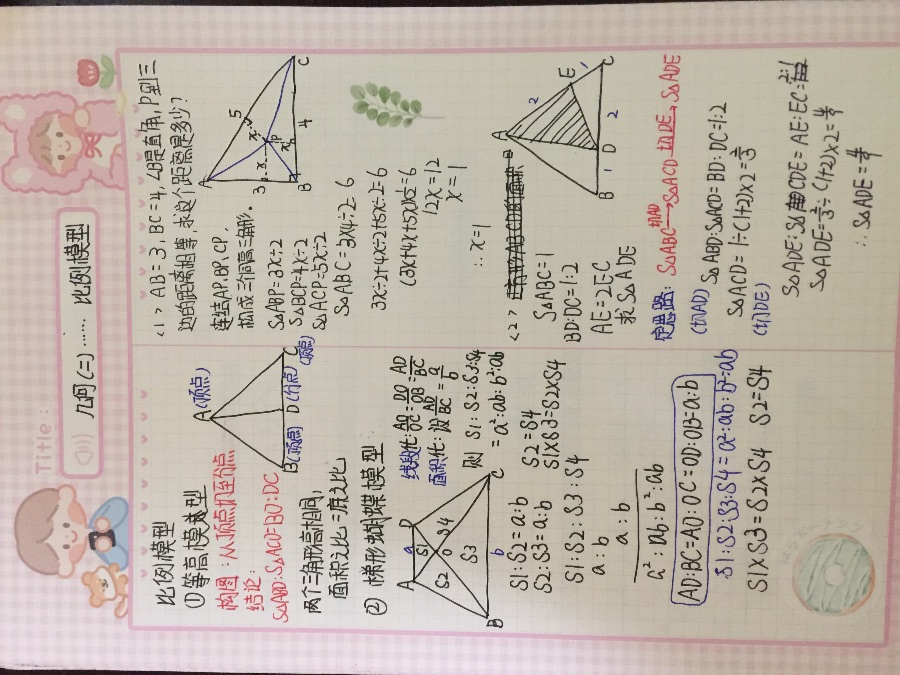 Title:
几何(二)…… 比例模型
比例模型
①等高模型
构图:从顶点引至分点
结论:
S△ABD:S△ACD=BD:DC
A(顶点)
B(顶点)
D(分点)
C(顶点)
两个三角形高相同,
面积之比=底之比
② 梯形蝴蝶模型
A a D
S1
S2 O S4
S3
B b C
线段比: AO/OC = DO/OB = AD/BC
面积比: 设 AD/BC = a/b
则 S1:S2:S3:S4
= a²:ab:b²:ab
S2=S4
S1×S3=S2×S4
S1:S2=a:b
S2:S3=a:b
S1:S2:S3:S4
a:b
a:b
a²:ab:b²:ab
AD:BC=AO:OC=OD:OB=a:b
S1:S2:S3:S4=a²:ab:b²:ab
S1×S3=S2×S4 S2=S4
<1> AB=3,BC=4,∠B是直角,P到三
边的距离相等,求这个距离是多少?
A
5
3 x x P x
B 4 C
连结AP,BP,CP,
构成三个同高三角形。
S△ABP=3x÷2
S△BCP=4x÷2
S△ACP=5x÷2
S△ABC=3×4÷2=6
3x÷2+4x÷2+5x÷2=6
(3x+4x+5x)×1/2=6
12x=12
x=1
∴x=1
<2>
S△ABC=1
BD:DC=1:2
AE=2EC
求S△ADE
A
2
E
1
B 1 D 2 C
定思路: S△ABC 切AD→S△ACD 切DE→S△ADE
(切AD) S△ABD:S△ACD=BD:DC=1:2
S△ACD=1÷(1+2)×2=2/3
(切DE) S△ADE:S△CDE=AE:EC=2:1
S△ADE=2/3÷(1+2)×2=4/9
∴S△ADE=4/9